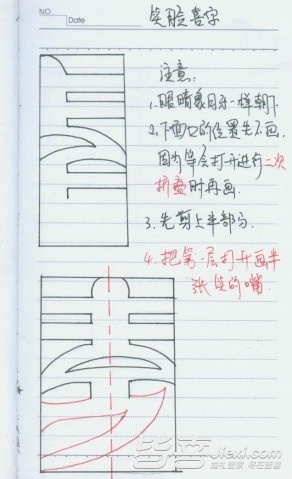 NO
Date
笑脸喜字
注意:
1.眼睛象日子一样朝下
2.下面口的位置先不画.
因为等会打开进行二次
折叠时再画.
3.先剪上半部分
4.把第一层打开画半
张笑的嘴.
Jiexi.com
婚礼管家 尽在皆喜